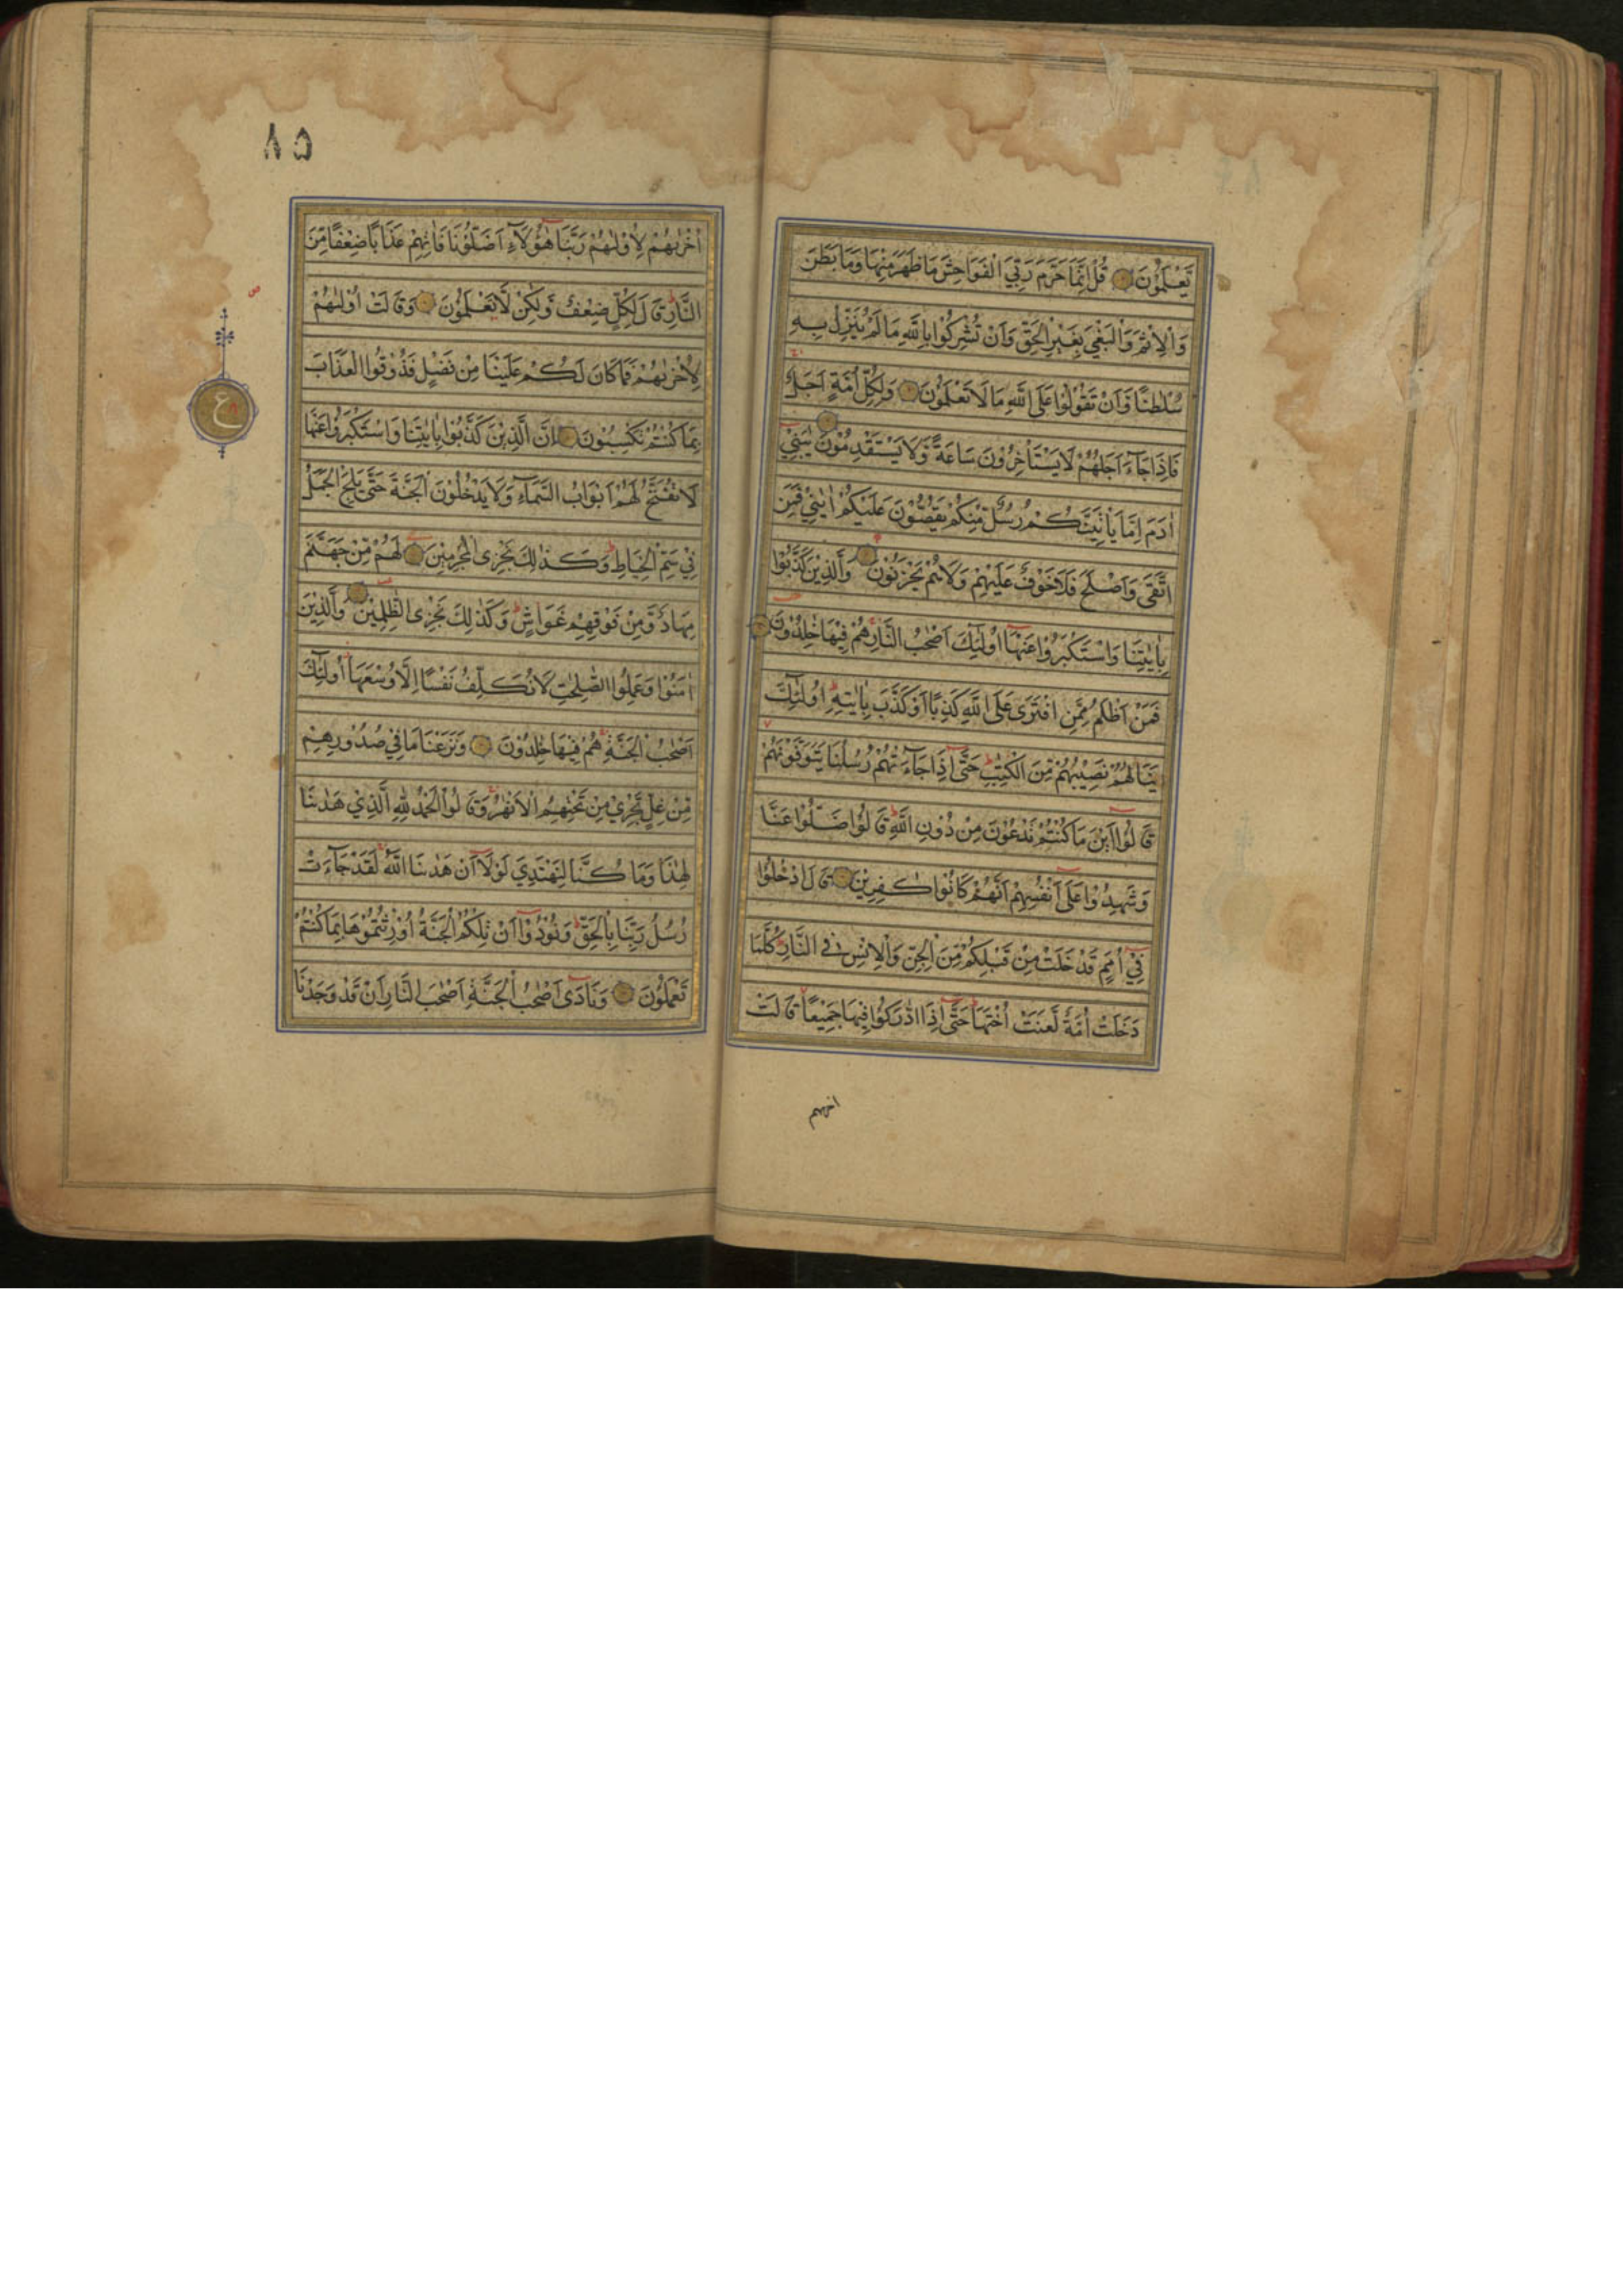 يَّعْلَمُوْنَ قُلْ اِنَّمَا حَرَّمَ رَبِّيَ الْفَوَاحِشَ مَا ظَهَرَ مِنْهَا وَمَا بَطَنَ
وَالْاِثْمَ وَالْبَغْيَ بِغَيْرِ الْحَقِّ وَاَنْ تُشْرِكُوْا بِاللّٰهِ مَا لَمْ يُنَزِّلْ بِهٖ
سُلْطٰنًا وَّاَنْ تَقُوْلُوْا عَلَى اللّٰهِ مَا لَا تَعْلَمُوْنَ وَلِكُلِّ اُمَّةٍ اَجَلٌ
فَاِذَا جَآءَ اَجَلُهُمْ لَا يَسْتَأْخِرُوْنَ سَاعَةً وَّلَا يَسْتَقْدِمُوْنَ يٰبَنِيْ
اٰدَمَ اِمَّا يَأْتِيَنَّكُمْ رُسُلٌ مِّنْكُمْ يَقُصُّوْنَ عَلَيْكُمْ اٰيٰتِيْ فَمَنِ
اتَّقٰى وَاَصْلَحَ فَلَا خَوْفٌ عَلَيْهِمْ وَلَا هُمْ يَحْزَنُوْنَ وَالَّذِيْنَ كَذَّبُوْا
بِاٰيٰتِنَا وَاسْتَكْبَرُوْا عَنْهَا اُولٰٓئِكَ اَصْحٰبُ النَّارِ هُمْ فِيْهَا خٰلِدُوْنَ
فَمَنْ اَظْلَمُ مِمَّنِ افْتَرٰى عَلَى اللّٰهِ كَذِبًا اَوْ كَذَّبَ بِاٰيٰتِهٖ اُولٰٓئِكَ
يَنَالُهُمْ نَصِيْبُهُمْ مِّنَ الْكِتٰبِ حَتّٰى اِذَا جَآءَتْهُمْ رُسُلُنَا يَتَوَفَّوْنَهُمْ
قَالُوْا اَيْنَ مَا كُنْتُمْ تَدْعُوْنَ مِنْ دُوْنِ اللّٰهِ قَالُوْا ضَلُّوْا عَنَّا
وَشَهِدُوْا عَلٰى اَنْفُسِهِمْ اَنَّهُمْ كَانُوْا كٰفِرِيْنَ قَالَ ادْخُلُوْا
فِيْ اُمَمٍ قَدْ خَلَتْ مِنْ قَبْلِكُمْ مِّنَ الْجِنِّ وَالْاِنْسِ فِي النَّارِ كُلَّمَا
دَخَلَتْ اُمَّةٌ لَّعَنَتْ اُخْتَهَا حَتّٰى اِذَا ادّٰرَكُوْا فِيْهَا جَمِيْعًا قَالَتْ
اخریهم
٨٥
اُخْرٰىهُمْ لِاُوْلٰىهُمْ رَبَّنَا هٰٓؤُلَآءِ اَضَلُّوْنَا فَاٰتِهِمْ عَذَابًا ضِعْفًا مِّنَ
النَّارِ قَالَ لِكُلٍّ ضِعْفٌ وَّلٰكِنْ لَّا تَعْلَمُوْنَ وَقَالَتْ اُوْلٰىهُمْ
لِاُخْرٰىهُمْ فَمَا كَانَ لَكُمْ عَلَيْنَا مِنْ فَضْلٍ فَذُوْقُوا الْعَذَابَ
بِمَا كُنْتُمْ تَكْسِبُوْنَ اِنَّ الَّذِيْنَ كَذَّبُوْا بِاٰيٰتِنَا وَاسْتَكْبَرُوْا عَنْهَا
لَا تُفَتَّحُ لَهُمْ اَبْوَابُ السَّمَآءِ وَلَا يَدْخُلُوْنَ الْجَنَّةَ حَتّٰى يَلِجَ الْجَمَلُ
فِيْ سَمِّ الْخِيَاطِ وَكَذٰلِكَ نَجْزِى الْمُجْرِمِيْنَ لَهُمْ مِّنْ جَهَنَّمَ
مِهَادٌ وَّمِنْ فَوْقِهِمْ غَوَاشٍ وَكَذٰلِكَ نَجْزِى الظّٰلِمِيْنَ وَالَّذِيْنَ
اٰمَنُوْا وَعَمِلُوا الصّٰلِحٰتِ لَا نُكَلِّفُ نَفْسًا اِلَّا وُسْعَهَا اُولٰٓئِكَ
اَصْحٰبُ الْجَنَّةِ هُمْ فِيْهَا خٰلِدُوْنَ وَنَزَعْنَا مَا فِيْ صُدُوْرِهِمْ
مِّنْ غِلٍّ تَجْرِيْ مِنْ تَحْتِهِمُ الْاَنْهٰرُ وَقَالُوا الْحَمْدُ لِلّٰهِ الَّذِيْ هَدٰىنَا
لِهٰذَا وَمَا كُنَّا لِنَهْتَدِيَ لَوْلَا اَنْ هَدٰىنَا اللّٰهُ لَقَدْ جَآءَتْ
رُسُلُ رَبِّنَا بِالْحَقِّ وَنُوْدُوْا اَنْ تِلْكُمُ الْجَنَّةُ اُوْرِثْتُمُوْهَا بِمَا كُنْتُمْ
تَعْمَلُوْنَ وَنَادٰى اَصْحٰبُ الْجَنَّةِ اَصْحٰبَ النَّارِ اَنْ قَدْ وَجَدْنَا
ع